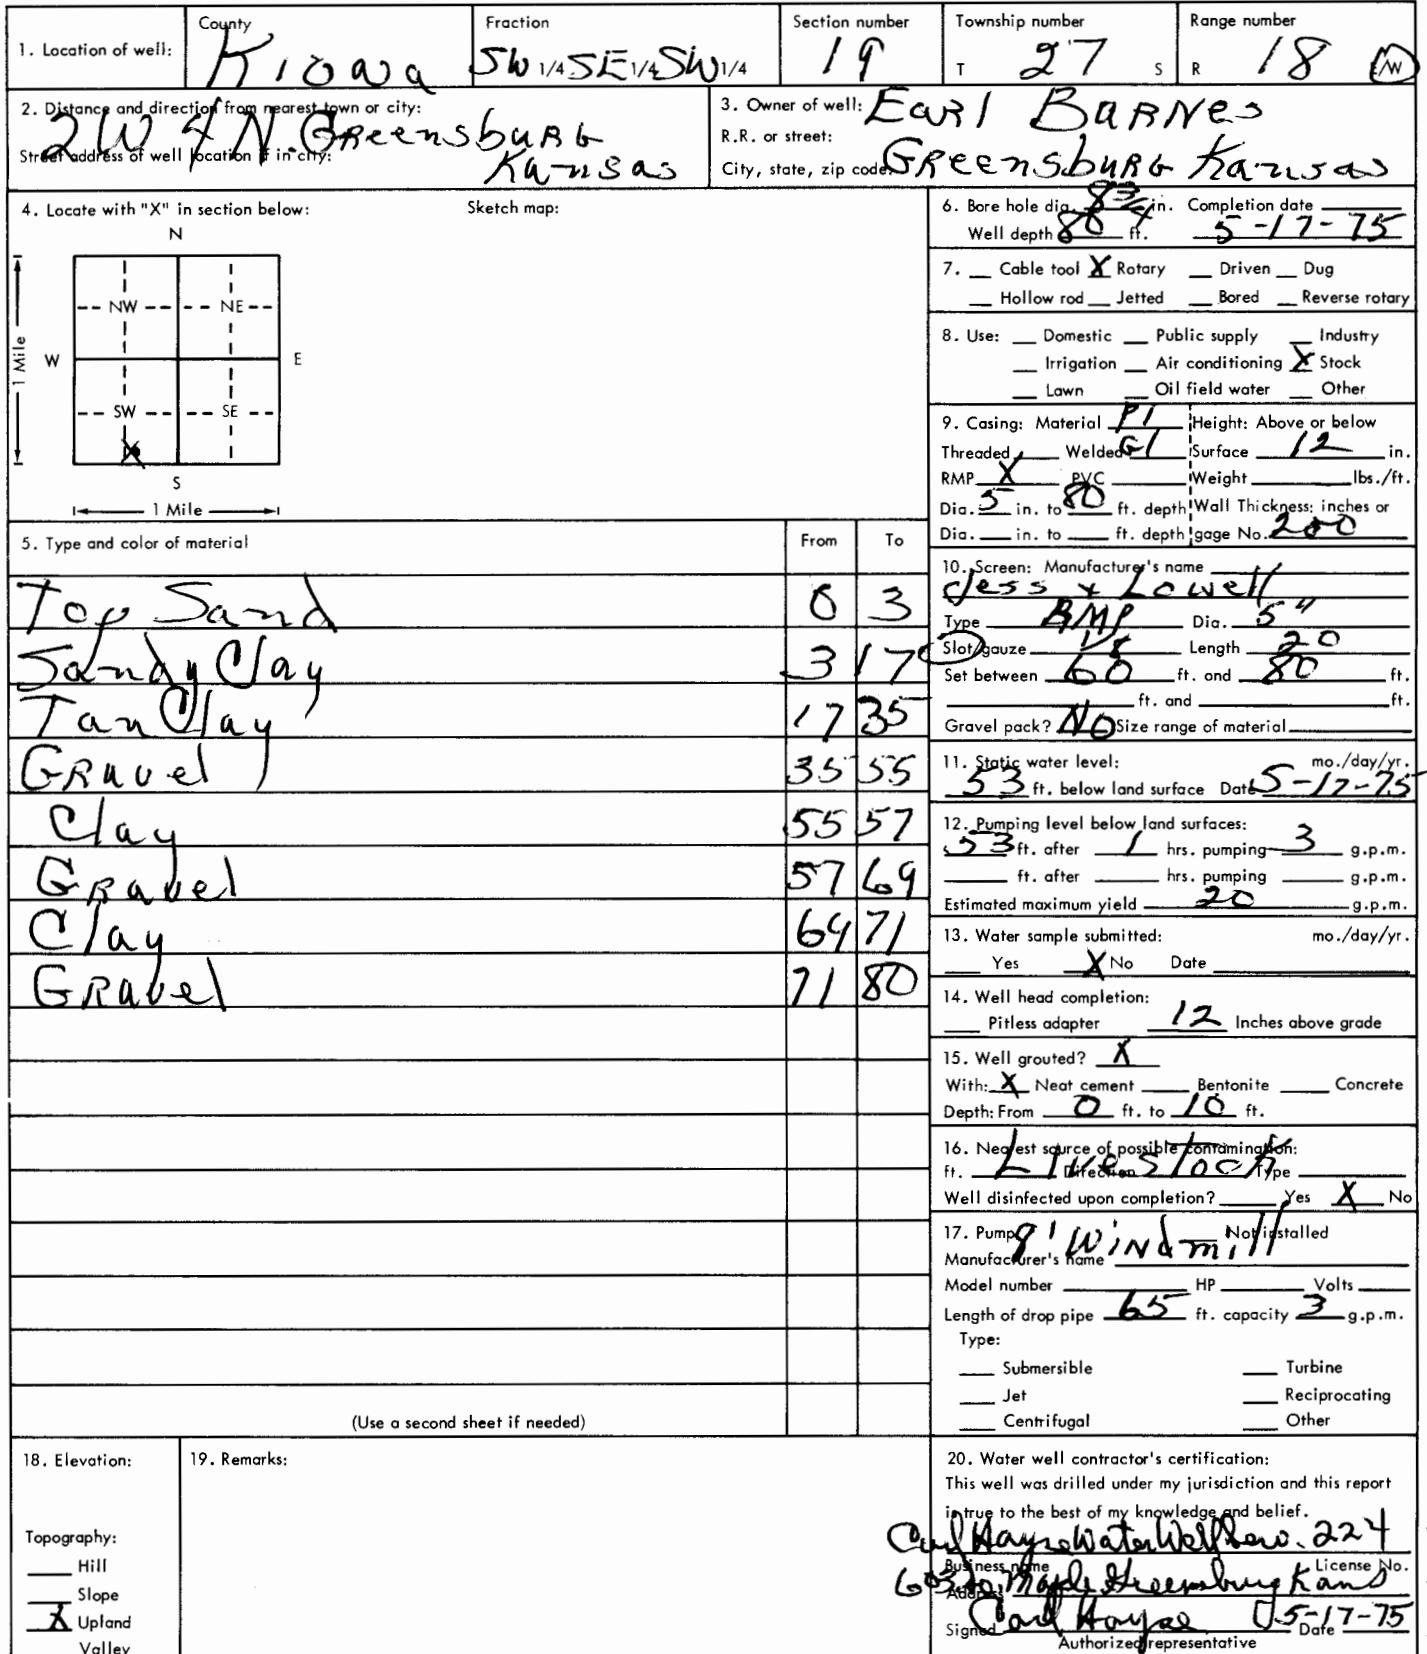 County Fraction Section number Township number Range number
1. Location of well: Kiowa SW 1/4 SE 1/4 SW 1/4 19 T 27 S R 18 E/W
2. Distance and direction from nearest town or city: 2W 4N. Greensburg
Street address of well location if in city: Kansas
3. Owner of well: Earl Barnes
R.R. or street:
City, state, zip code: Greensburg Kansas
4. Locate with "X" in section below: Sketch map:
N
NW NE
W E
1 Mile
SW SE
X
S
1 Mile
5. Type and color of material From To
Top Sand 0 3
Sandy Clay 3 17
Tan Clay 17 35
Gravel 35 55
Clay 55 57
Gravel 57 69
Clay 69 71
Gravel 71 80
(Use a second sheet if needed)
6. Bore hole dia. 8 3/4 in. Completion date
Well depth 80 ft. 5-17-75
7. Cable tool X Rotary Driven Dug
Hollow rod Jetted Bored Reverse rotary
8. Use: Domestic Public supply Industry
Irrigation Air conditioning X Stock
Lawn Oil field water Other
9. Casing: Material Pl Height: Above or below
Threaded Welded Gl Surface 12 in.
RMP X PVC Weight lbs./ft.
Dia. 5 in. to 80 ft. depth Wall Thickness: inches or
Dia. in. to ft. depth gage No. 200
10. Screen: Manufacturer's name
Jess & Lowell
Type RMP Dia. 5"
Slot/gauze 1/8 Length 20
Set between 60 ft. and 80 ft.
ft. and ft.
Gravel pack? No Size range of material
11. Static water level: mo./day/yr.
53 ft. below land surface Date 5-17-75
12. Pumping level below land surfaces:
53 ft. after 1 hrs. pumping 3 g.p.m.
ft. after hrs. pumping g.p.m.
Estimated maximum yield 20 g.p.m.
13. Water sample submitted: mo./day/yr.
Yes X No Date
14. Well head completion:
Pitless adapter 12 Inches above grade
15. Well grouted? X
With: X Neat cement Bentonite Concrete
Depth: From 0 ft. to 10 ft.
16. Nearest source of possible contamination:
ft. Livestock Direction Type
Well disinfected upon completion? Yes X No
17. Pump: 8' Windmill Not installed
Manufacturer's name
Model number HP Volts
Length of drop pipe 65 ft. capacity 3 g.p.m.
Type:
Submersible Turbine
Jet Reciprocating
Centrifugal Other
18. Elevation: 19. Remarks:
Topography:
Hill
Slope
X Upland
Valley
20. Water well contractor's certification:
This well was drilled under my jurisdiction and this report
is true to the best of my knowledge and belief.
Carl Hayse Water Well 224
Business name License No.
603 Maple Greensburg Kans
Address
Signed Carl Hayse Date 5-17-75
Authorized representative